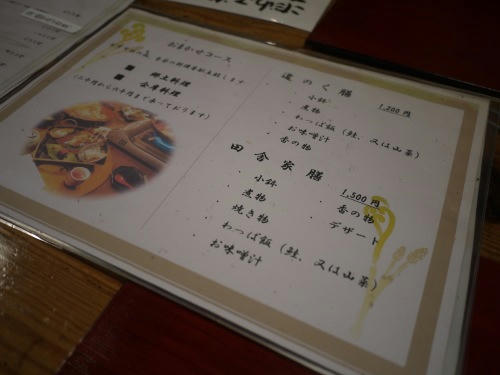 おまかせコース
郷土料理
会席料理
道のく膳 1,200円
・小鉢
・煮物
・わっぱ飯(鮭、又は山菜)
・お味噌汁
・香の物
田舎家膳 1,500円
・小鉢 ・香の物
・煮物 ・デザート
・焼き物
・わっぱ飯(鮭、又は山菜)
・お味噌汁